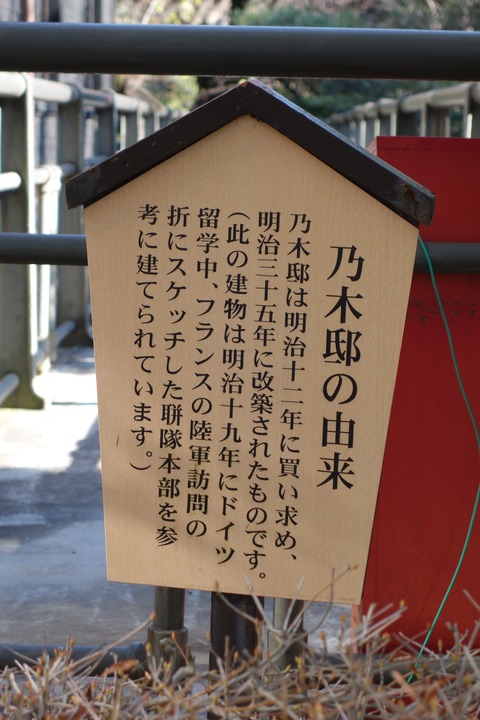 乃木邸の由来
乃木邸は明治十二年に買い求め、
明治三十五年に改築されたものです。
（此の建物は明治十九年にドイツ
留学中、フランスの陸軍訪問の
折にスケッチした聨隊本部を参
考に建てられています。）